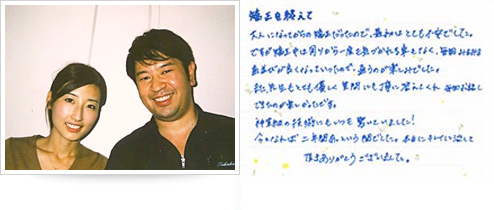 矯正を終えて
大人になってからの矯正だったので、最初はとても不安でした。
ですが矯正中は周りから一度も気づかれる事もなく、毎回みるみる
歯並びが良くなっていったので、通うのが楽しみでした。
また、先生もとても優しく質問にも丁寧に答えてくれ、毎回お話し
するのが楽しかったです。
神業級の技術にもいつも驚いていました!
今となれば二年間あっという間でした。本当にきれいに治して
頂きありがとうございました。